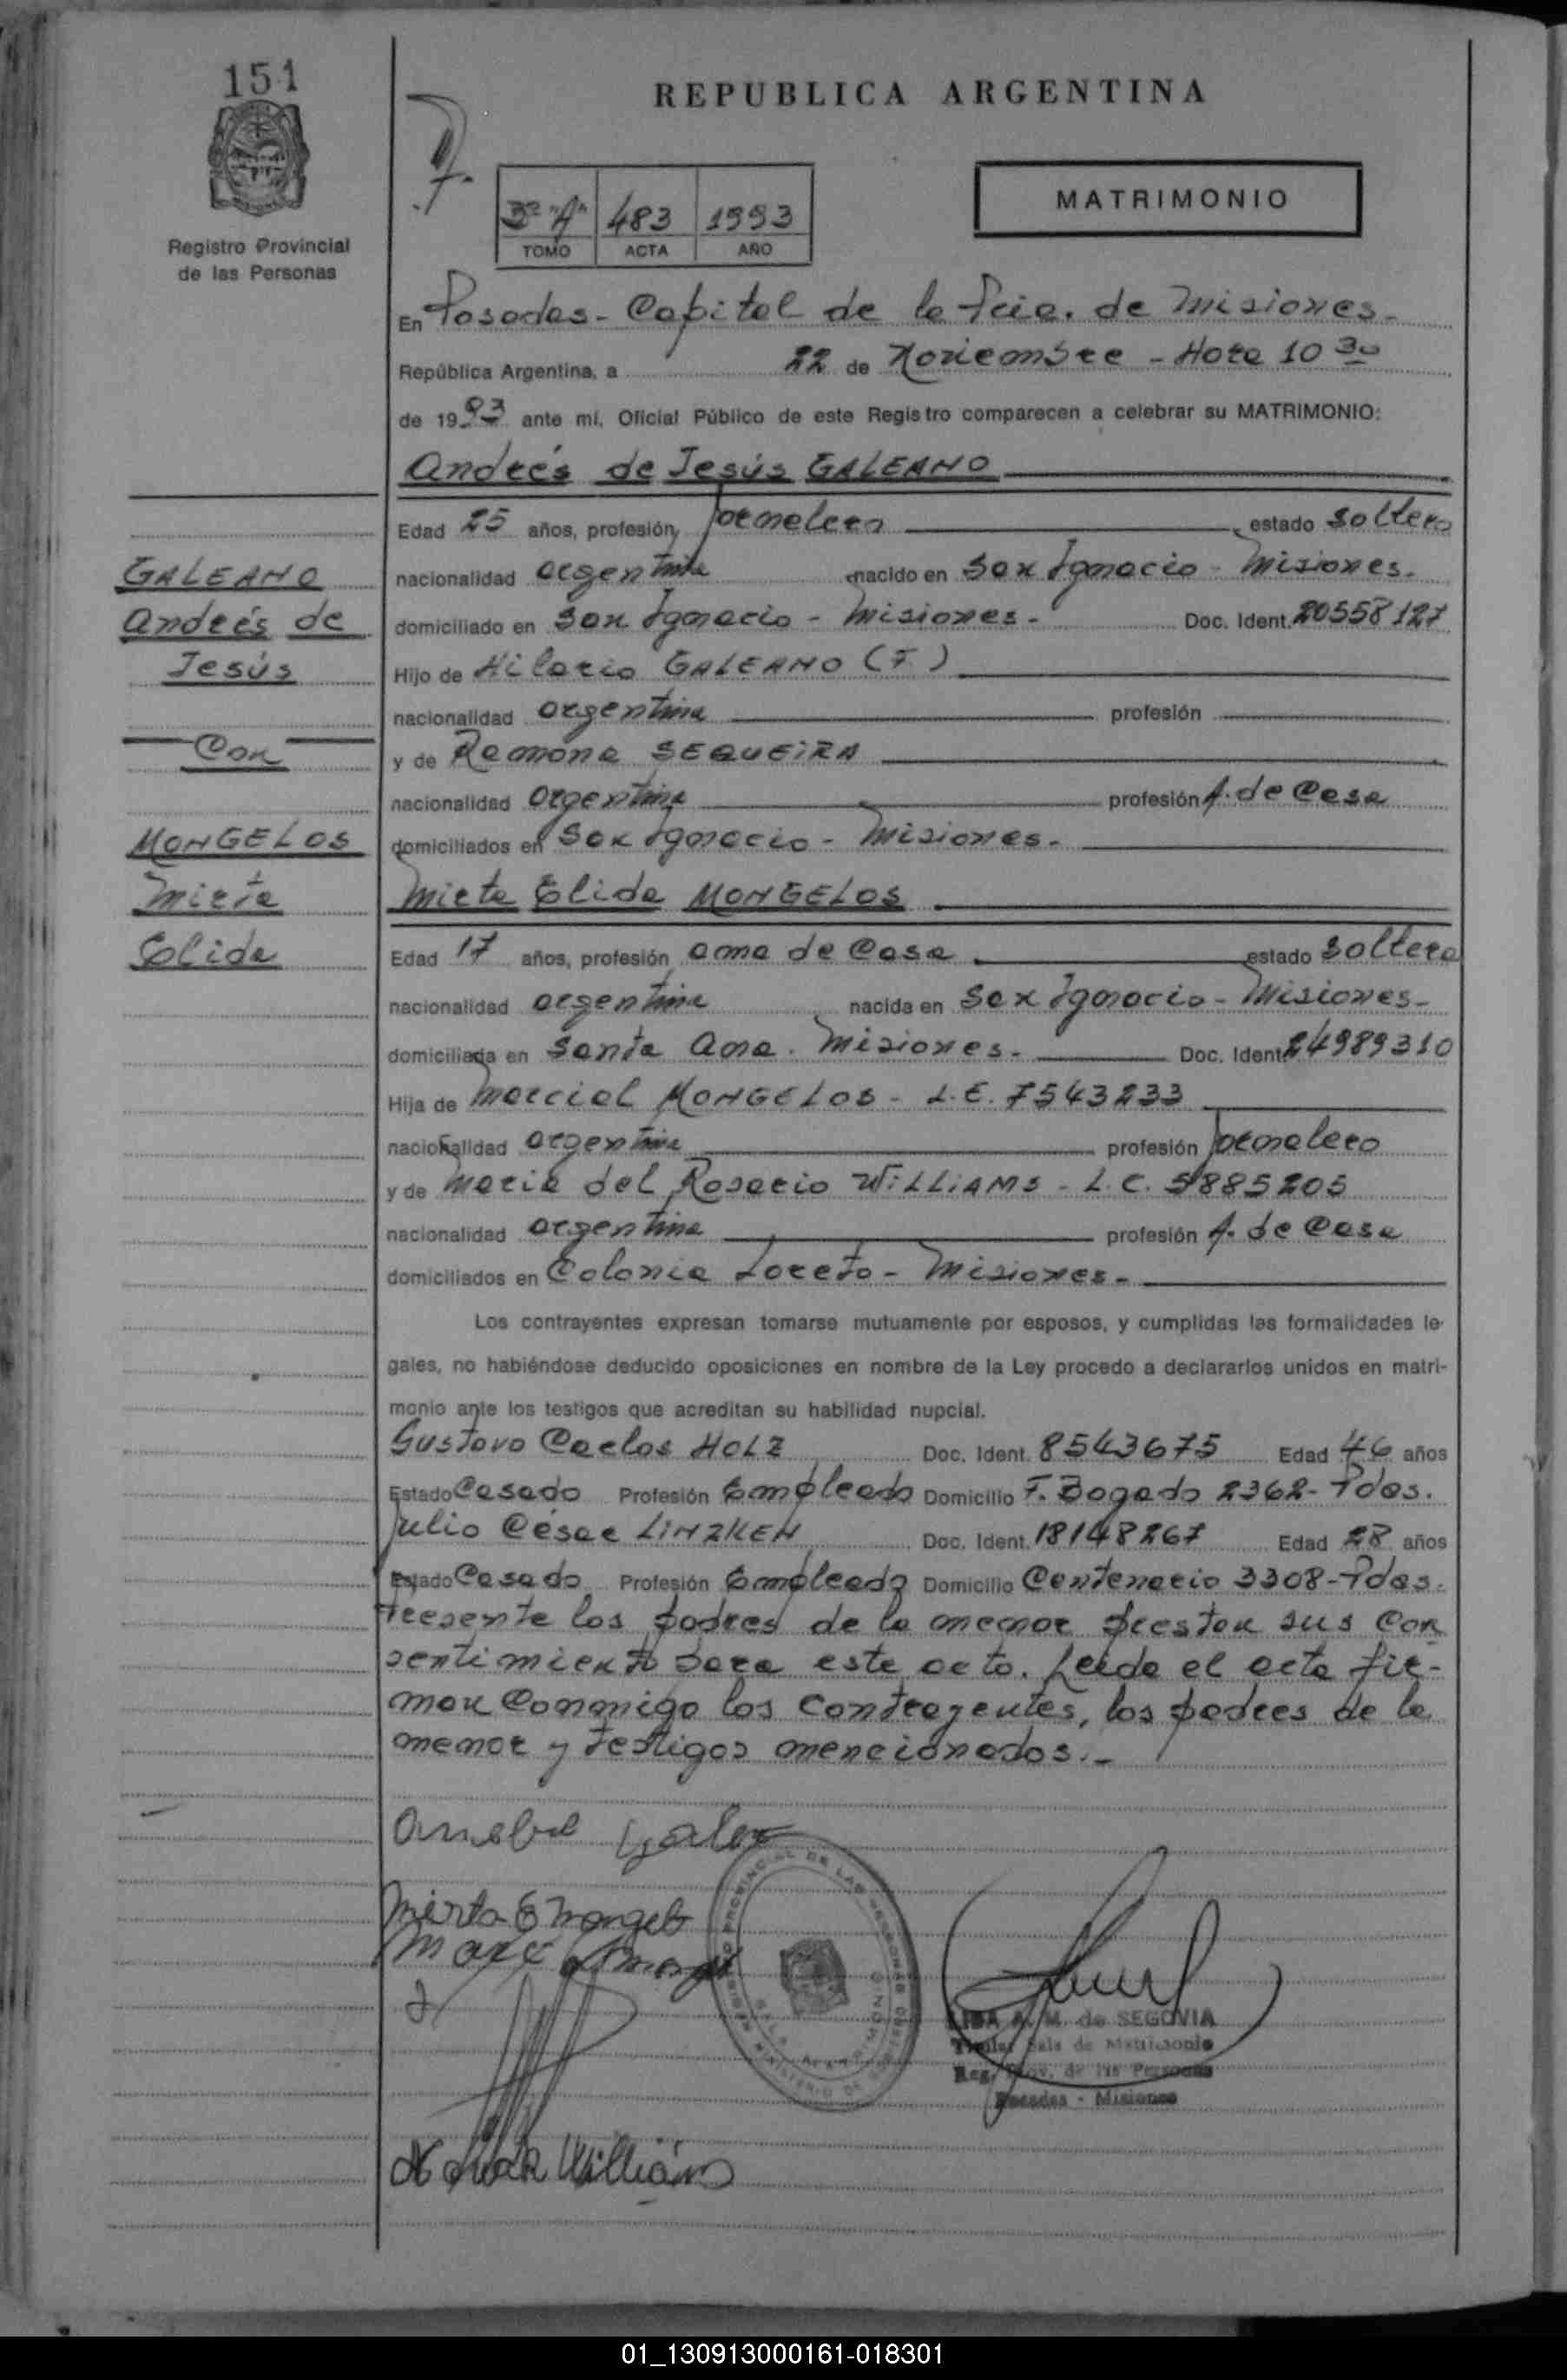 151
REPUBLICA ARGENTINA
MATRIMONIO
3º "A" 483 1993
TOMO ACTA AÑO
Registro Provincial
de las Personas
En Posadas - Capital de la Pcia. de Misiones -
República Argentina, a 22 de Noviembre - Hora 10 30
de 1993 ante mí, Oficial Público de este Registro comparecen a celebrar su MATRIMONIO:
Andrés de Jesús GALEANO
GALEANO
Andrés de
Jesús
Con
MONGELOS
Mirta
Elida
Edad 25 años, profesión Jornalero estado Soltero
nacionalidad argentina nacido en San Ignacio - Misiones.
domiciliado en San Ignacio - Misiones - Doc. Ident. 20558127
Hijo de Hilario GALEANO (F.)
nacionalidad argentina profesión
y de Ramona SEQUEIRA
nacionalidad argentina profesión A. de Casa
domiciliados en San Ignacio - Misiones -
Mirta Elida MONGELOS
Edad 17 años, profesión ama de Casa estado Soltera
nacionalidad argentina nacida en San Ignacio - Misiones -
domiciliada en Santa Ana. Misiones - Doc. Ident. 24989310
Hija de Marcial MONGELOS - L.E. 7543233
nacionalidad argentina profesión Jornalero
y de Maria del Rosario WILLIAMS - L.C. 5885205
nacionalidad argentina profesión A. de Casa
domiciliados en Colonia Loreto - Misiones -
Los contrayentes expresan tomarse mutuamente por esposos, y cumplidas las formalidades le-
gales, no habiéndose deducido oposiciones en nombre de la Ley procedo a declararlos unidos en matri-
monio ante los testigos que acreditan su habilidad nupcial.
Gustavo Carlos HOLZ Doc. Ident. 8543675 Edad 46 años
Estado Casado Profesión Empleado Domicilio F. Bogado 2362 - Pdas.
Julio César LINZKEN Doc. Ident. 18148267 Edad 28 años
Estado Casado Profesión Empleado Domicilio Centenario 3308 - Pdas.
Presente los padres de la menor prestan sus con
sentimiento para este acto. Leida el acta fir-
man conmigo los contrayentes, los padres de la
menor y testigos mencionados. -
Mirta E Mongelo
LISA A. M. de SEGOVIA
Titular Sala de Matrimonio
Reg. Prov. de las Personas
Posadas - Misiones
Williams
01_130913000161-018301